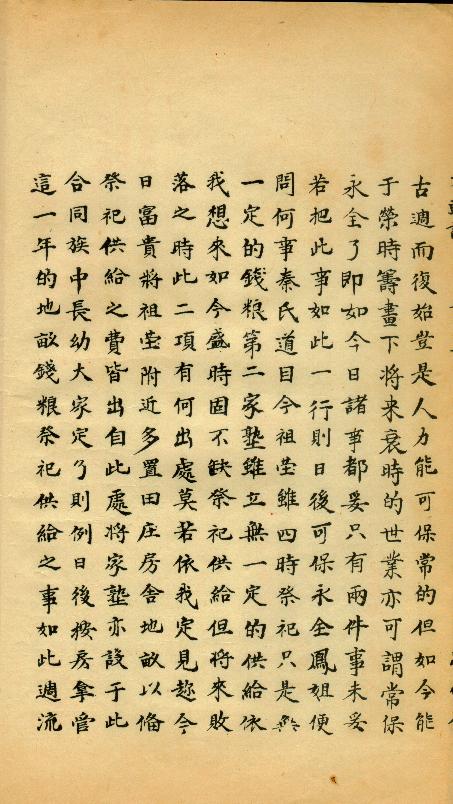 古週而復始豈是人力能可保常的但如今能
于榮時籌畫下將来衰時的世業亦可謂常保
永全了即如今日諸事都妥只有兩件事未妥
若把此事如此一行則日後可保永全鳳姐便
問何事秦氏道目今祖茔雖四時祭祀只是無
一定的錢粮第二家塾雖立無一定的供給依
我想来如今盛時固不缺祭祀供給但將来敗
落之時此二項有何出處莫若依我定見趂今
日富貴將祖茔附近多置田庄房舍地畝以俻
祭祀供給之費皆出自此處將家塾亦設于此
合同族中長幼大家定了則例日後按房拿管
這一年的地畝錢粮祭祀供給之事如此週流